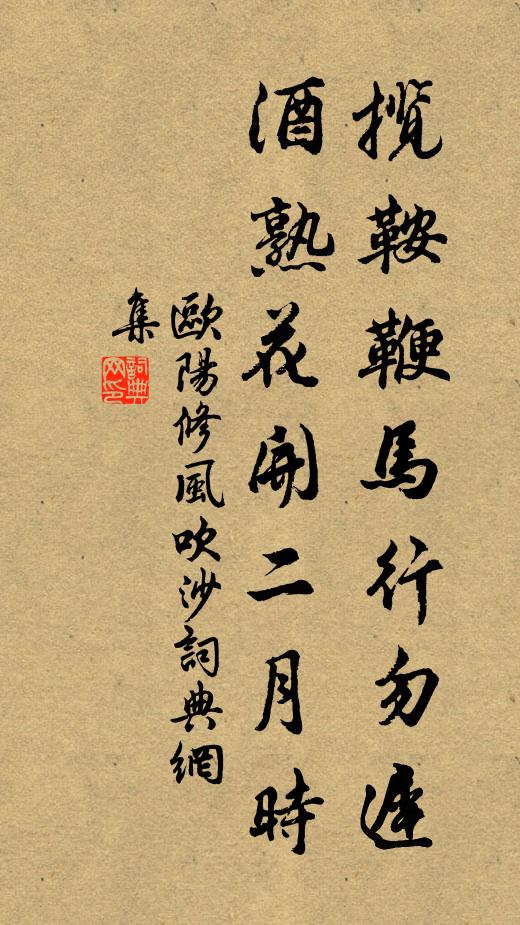 攬鞍鞭馬行勿遲
酒熟花開二月時
歐陽修風吹沙詞典網
集
詞典
网印